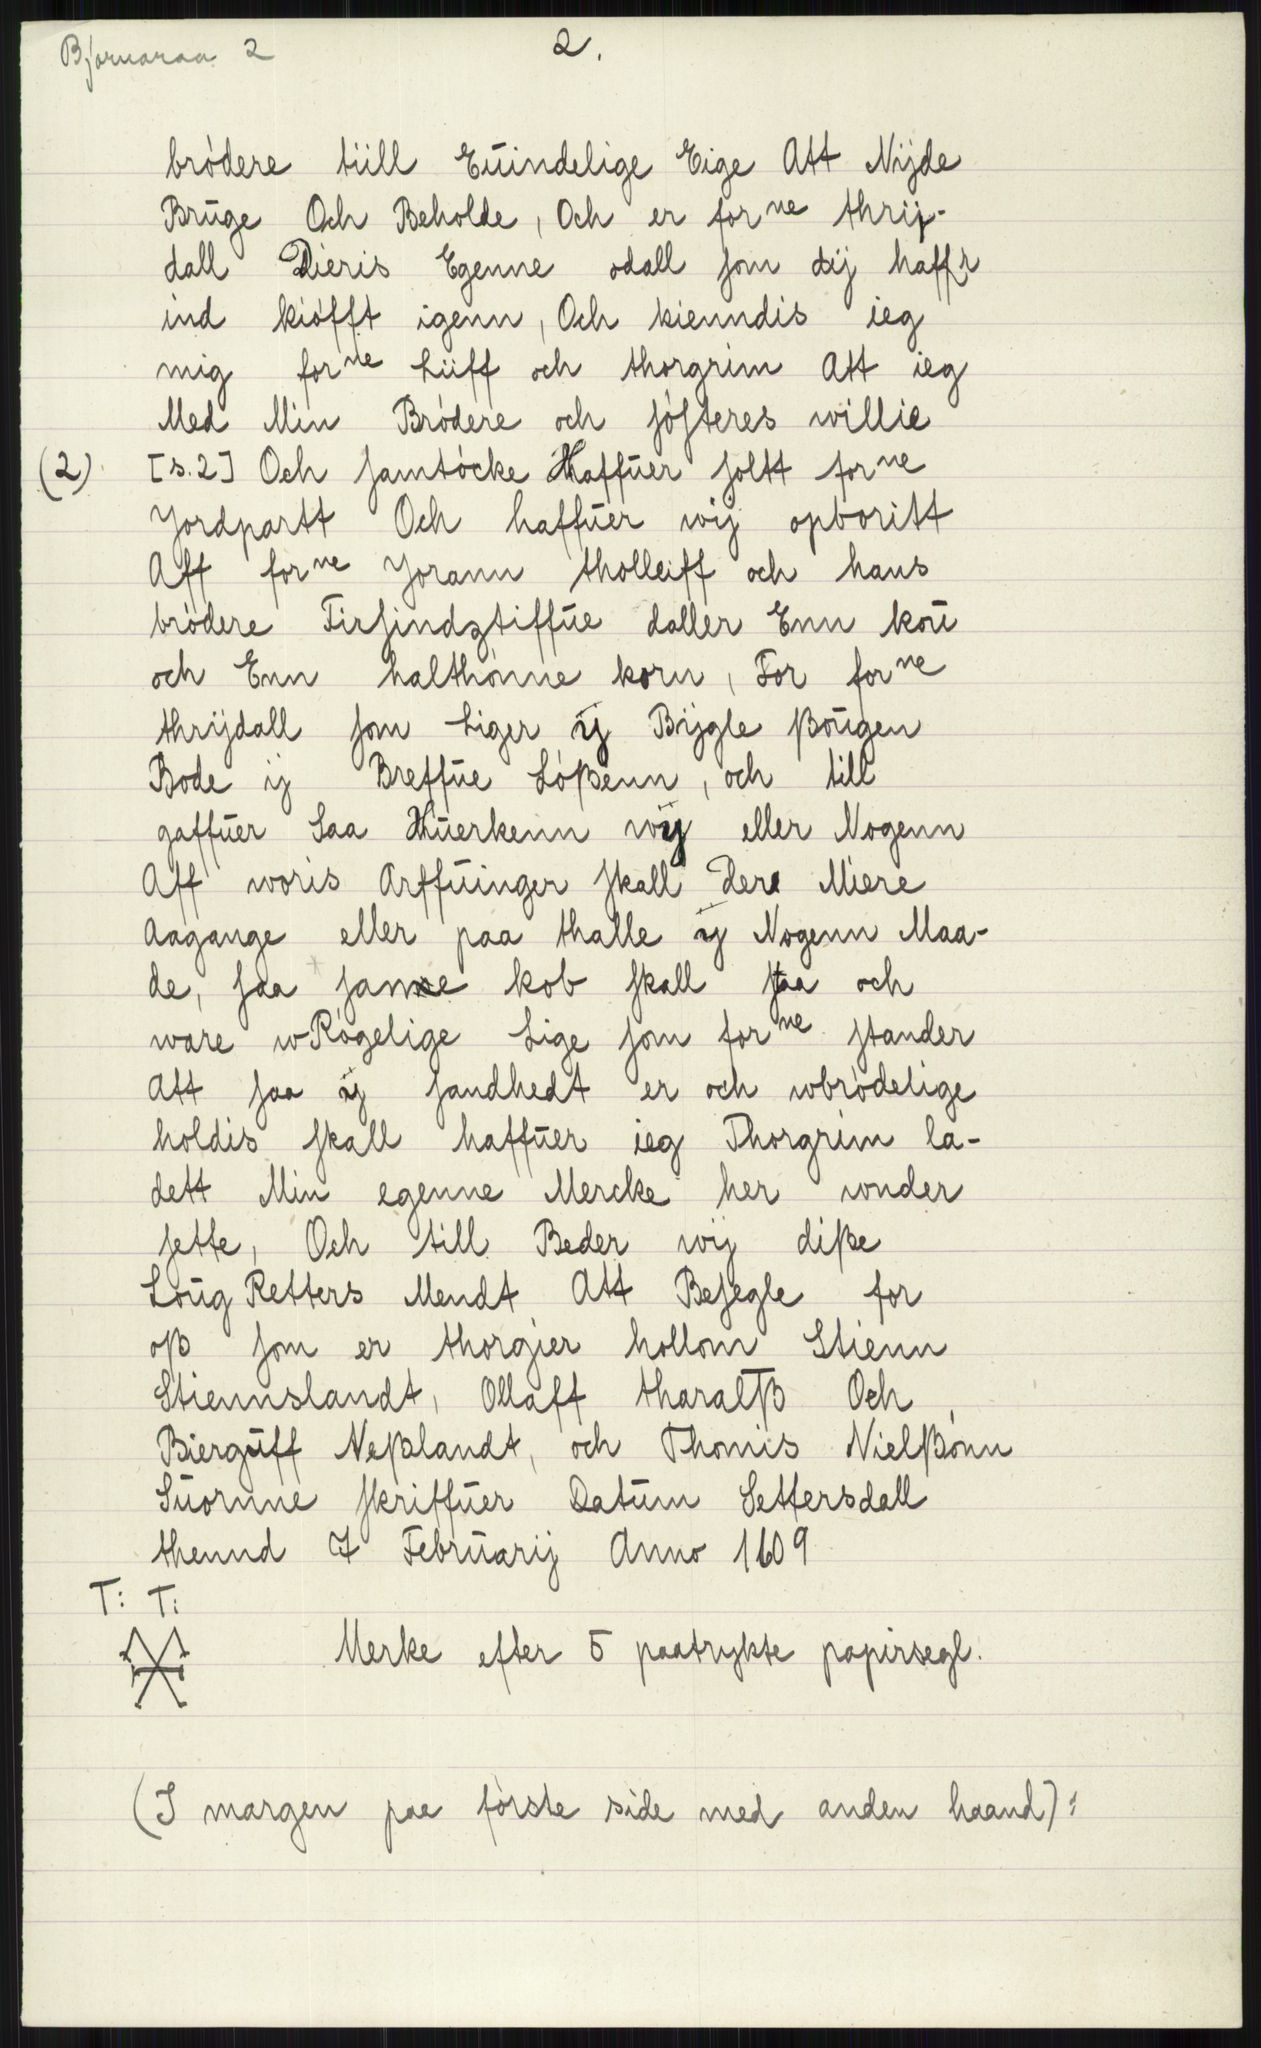 Bjørnaraa 2
2.
brødere tiill Euindelige Eige Att Nijde
Brūge Och Beholde, Och er for ne thrij-
dall Dieris Egenne odall som dij haffr
ind kiøfft igenn, Och kienndis ieg
mig for ne Liiff och thorgrim Att ieg
Med Min Brødere och søsteres willie
(2) [s.2] Och samtøcke Haffūer soltt for ne
Jordpartt Och haffūer wij opboritt
Aff for ne Jorann tholleiff och hans
brødere Firsindztiffūe daller Enn koū
och Enn halthønne korn, For for ne
thrijdall som Liger ij Bijgle ßoūgen
Bode ij Breffūe Løßenn, och till
gaffūer Saa Hūerkenn wij eller Nogenn
Aff woris Arffūinger skall Dere Miere
Aagange eller paa thalle ij Nogenn Maa-
de, saa samme kob skall staa och
ware wRøgelige Lige som for ne stander
Att saa ij sandhedt er och wbrødelige
holdis skall haffūer ieg Thorgrim la-
dett Min egenne Mercke her wnder
sette, Och till Beder wij diße
Loūg Retters Mendt Att Besegle for
oß som er thorgier hollom Stienn
Stiennslandt, Ollaff tharalß Och
Biergūff Neßlandt, och Thomis Nielßønn
Sūornne skriffūer Datūm Settersdall
thennd 7 Febrūarij Anno 1609
T: T:
Merke efter 5 paatrykte papirsegl.
(I margen paa første side med anden haand):